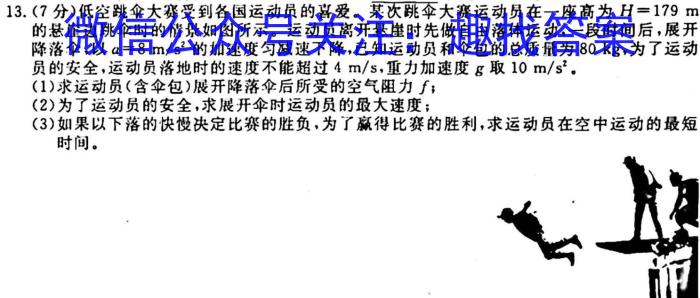 13.(7分)低空跳伞大赛受到各国运动员的喜爱。某次跳伞大赛运动员在一座高为H=179 m
的悬崖边跳伞时的情景如图所示。运动员离开悬崖时先做自由落体运动,一段时间后,展开
降落伞 的加速度匀减速下降,已知运动员和伞包的总重量为80 kg,为了运动
员的安全,运动员落地时的速度不能超过4 m/s,重力加速度g取10 m/s²。
(1)求运动员(含伞包)展开降落伞后所受的空气阻力f;
(2)为了运动员的安全,求展开伞时运动员的最大速度;
(3)如果以下落的快慢决定比赛的胜负,为了赢得比赛的胜利,求运动员在空中运动的最短
时间。
微信公众号关注:趣找答案